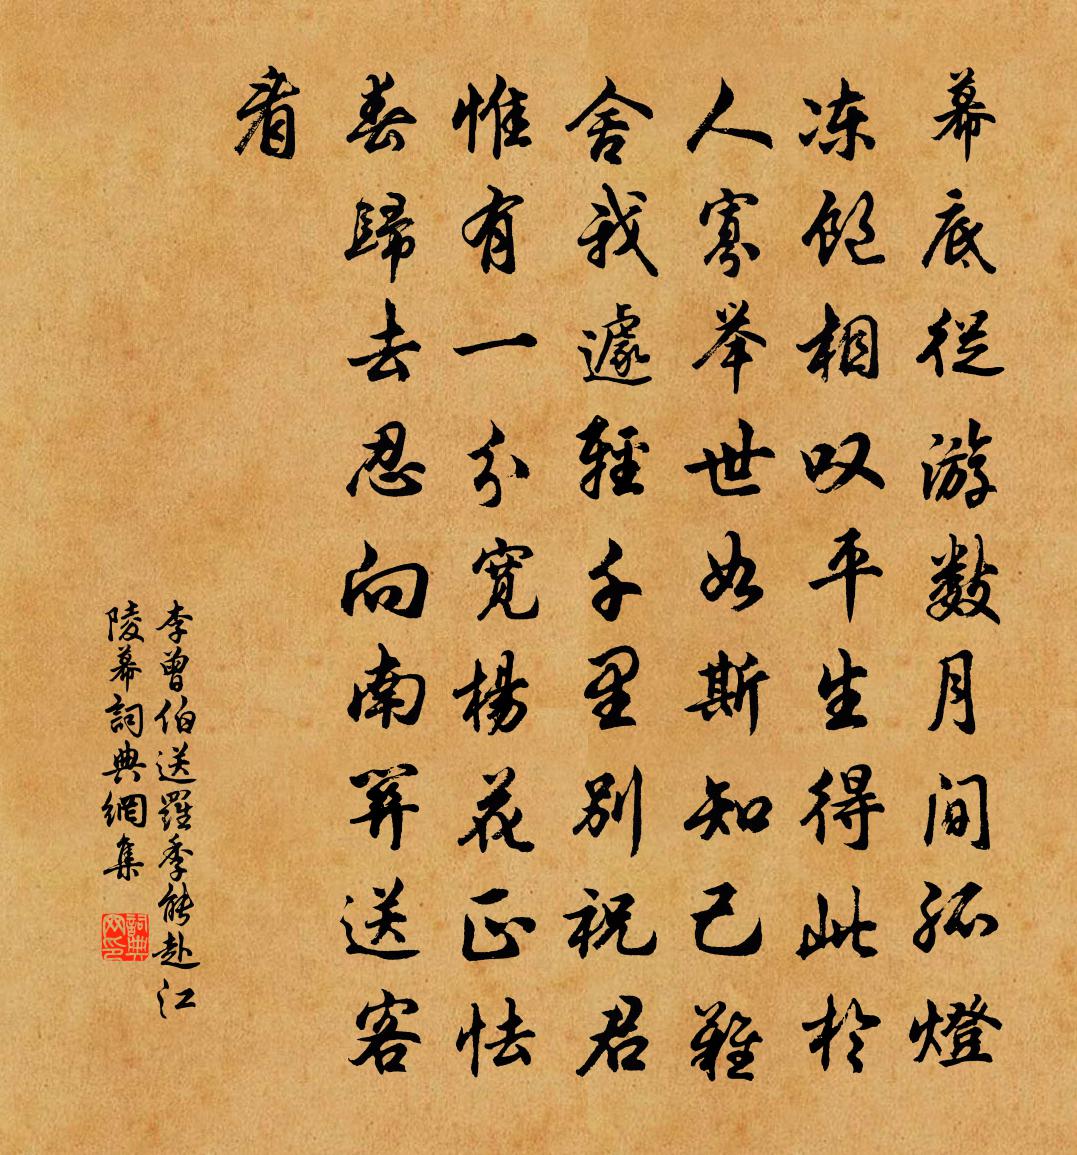 幕底從游數月間孤燈
冻飽相叹平生得此於
人寡举世如斯知己難
舍我遽輕千里別祝君
惟有一分寬楊花正怯
春歸去忍向南笄送客
看
李曾伯送羅季能赴江
陵幕詞典網集
詞典网印